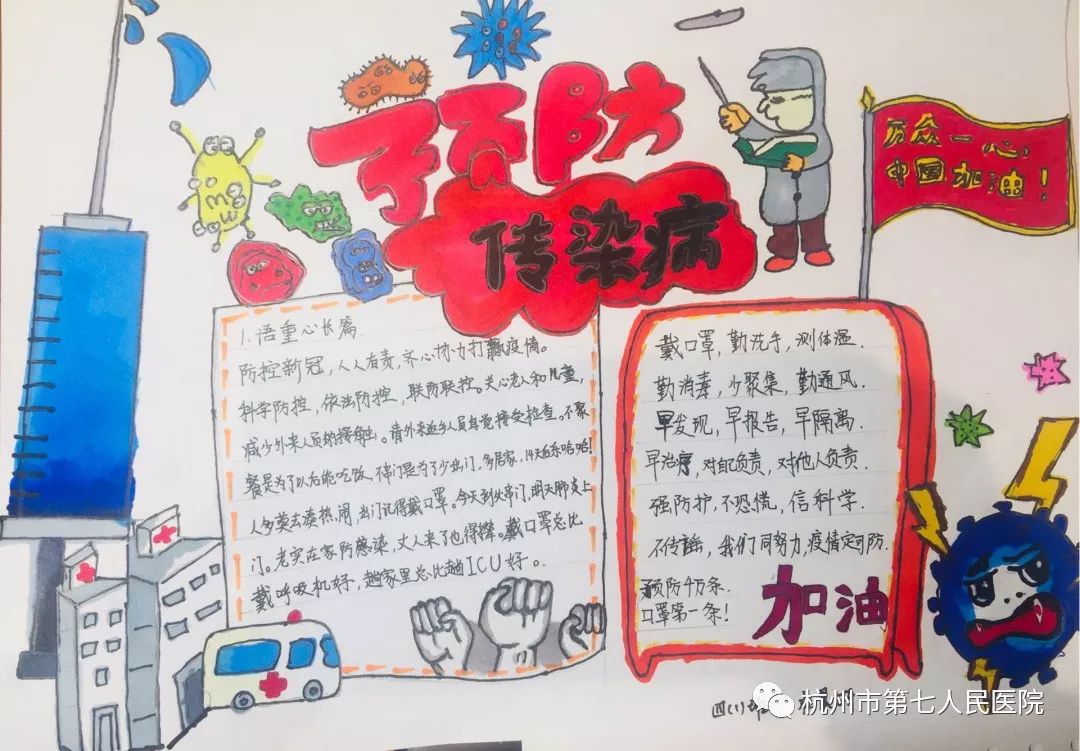 预防
传染病
万众一心,
中国加油!
1.语重心长篇.
防控新冠,人人有责,齐心协力打赢疫情。
科学防控,依法防控,联防联控。关心老人和儿童,
减少外来人员的接触。请外来返乡人员自觉接受检查。不聚
餐是为了以后能吃饭,不串门是为了少出门,多居家,14天后东哈哈!
人多莫去凑热闹,出门记得戴口罩。今天到处串门,明天肺炎上
门。老实在家防感染,丈人来了也得撵。戴口罩总比
戴呼吸机好,趟家里总比趟ICU好。.
戴口罩,勤洗手,测体温.
勤消毒,少聚集,勤通风.
早发现,早报告,早隔离.
早治疗,对自己负责,对他人负责.
强防护,不恐慌,信科学.
不传谣,我们同努力,疫情定可防.
预防千万条.
口罩第一条!
加油
四(1)
杭州市第七人民医院